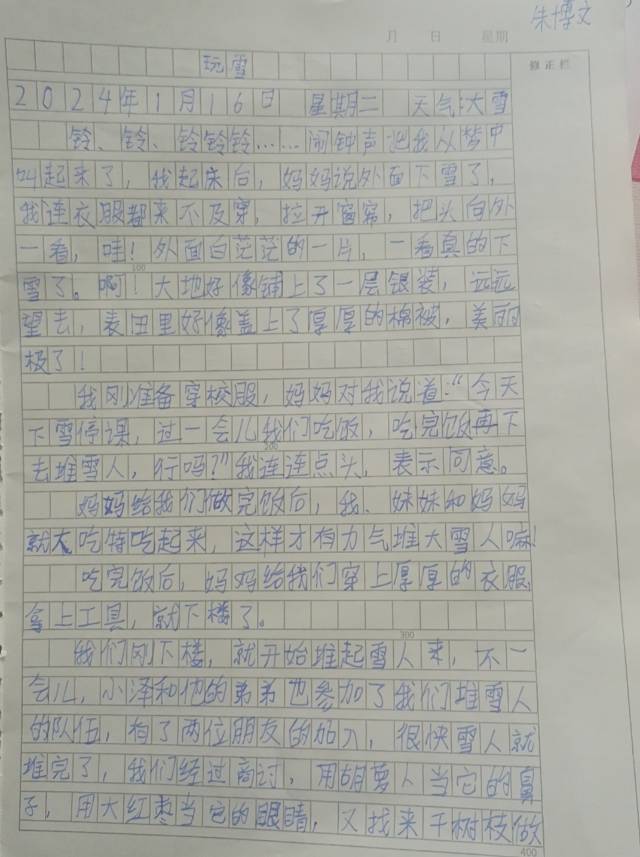 朱博文
月 日 星期
修正栏
玩雪
2024年1月16日 星期二 天气:大雪
铃、铃、铃铃铃……闹钟声把我从梦中
叫起来了，我起床后，妈妈说外面下雪了，
我连衣服都来不及穿，拉开窗帘，把头向外
一看，哇！外面白茫茫的一片，一看真的下
雪了。啊！大地好像铺上了一层银装，远远
100
望去，麦田里好像盖上了厚厚的棉被，美丽
极了！
我刚准备穿校服，妈妈对我说道：“今天
下雪停课，过一会儿我们吃饭，吃完饭再下
200
去堆雪人，行吗？”我连连点头，表示同意。
妈妈给我们做完饭后，我、妹妹和妈妈
就大吃特吃起来，这样才有力气堆大雪人嘛！
吃完饭后，妈妈给我们穿上厚厚的衣服，
拿上工具，就下楼了。
300
我们刚下楼，就开始堆起雪人来，不一
会儿，小泽和他的弟弟也参加了我们堆雪人
的队伍，有了两位朋友的加入，很快雪人就
堆完了，我们经过商讨，用胡萝人当它的鼻
子，用大红枣当它的眼睛，又找来干树枝做
400